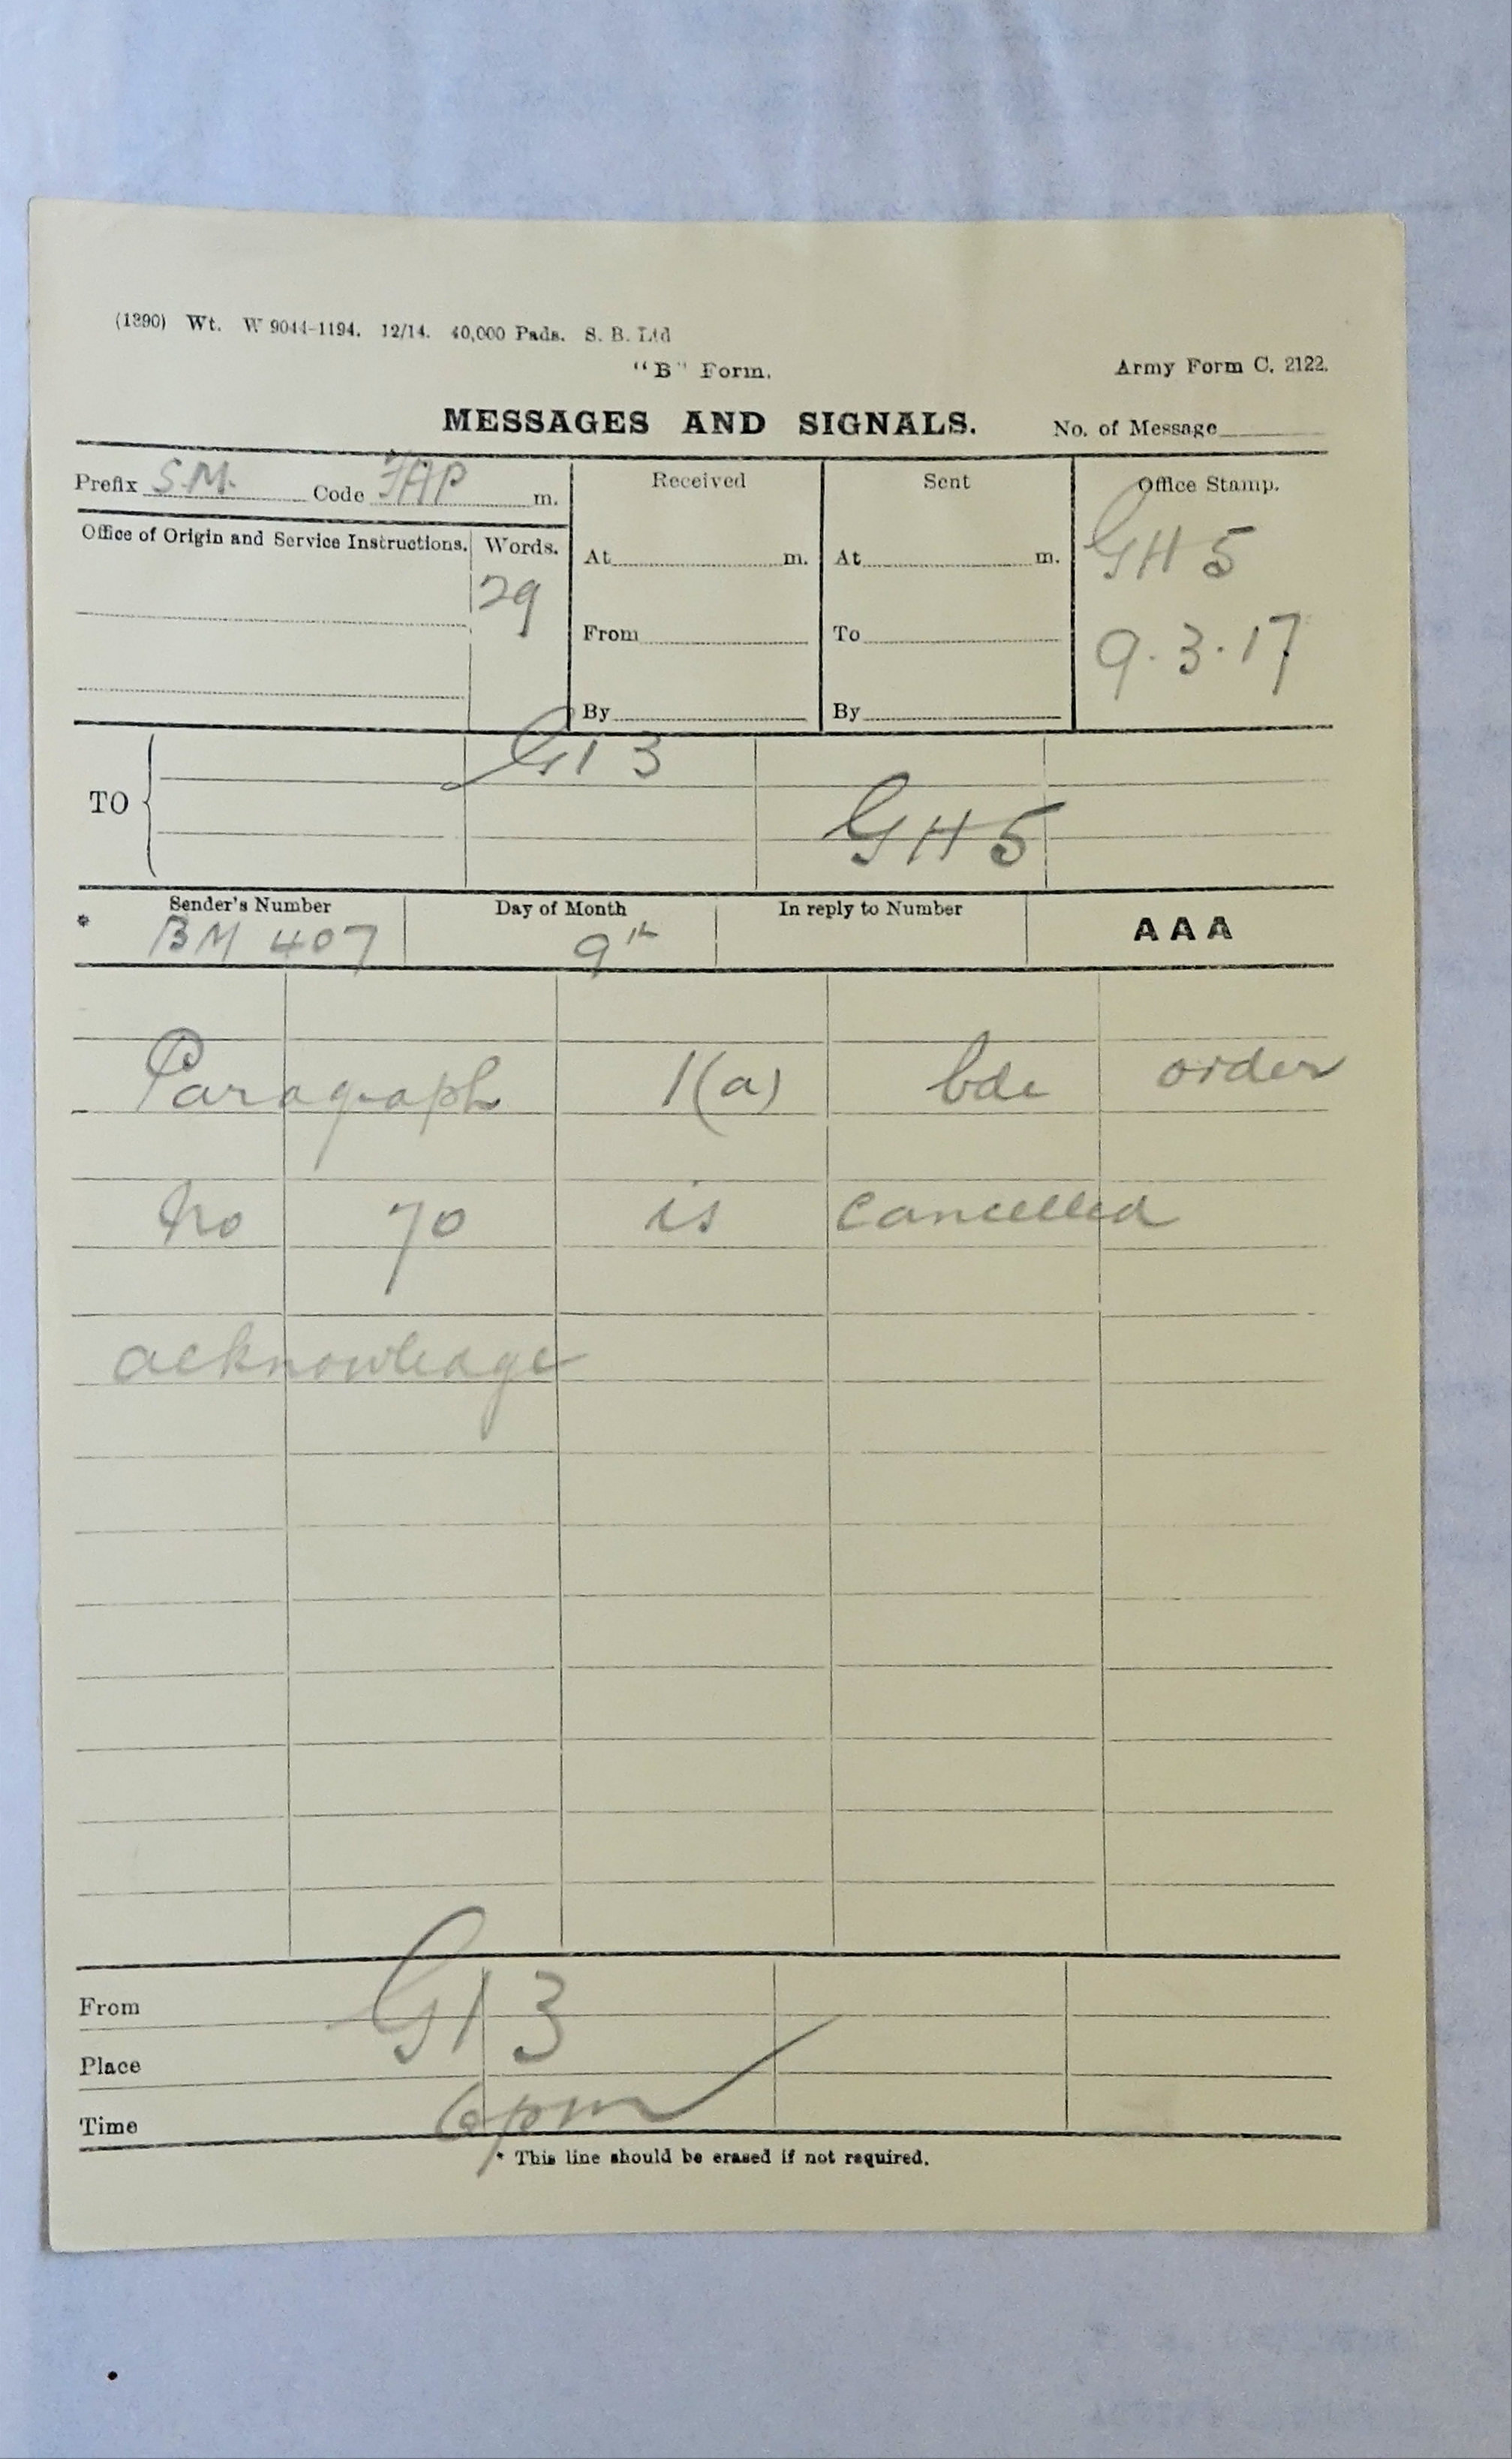 (1390) Wt. W 9044-1194. 12/14. 40,000 Pads. S. B. Ltd
"B" Form.
Army Form C. 2122.
MESSAGES AND SIGNALS.
No. of Message
Prefix S.M. Code FAP m.
Received
Sent
Office Stamp.
Office of Origin and Service Instructions.
Words.
29
At m.
At m.
GH5
From
To
9.3.17
By
By
TO
G13
GH5
* Sender's Number
Day of Month
In reply to Number
AAA
BM 407
9th
Paragraph 1(a) bde order
No 70 is cancelled
acknowledge
From
G13
Place
Time
6pm
* This line should be erased if not required.